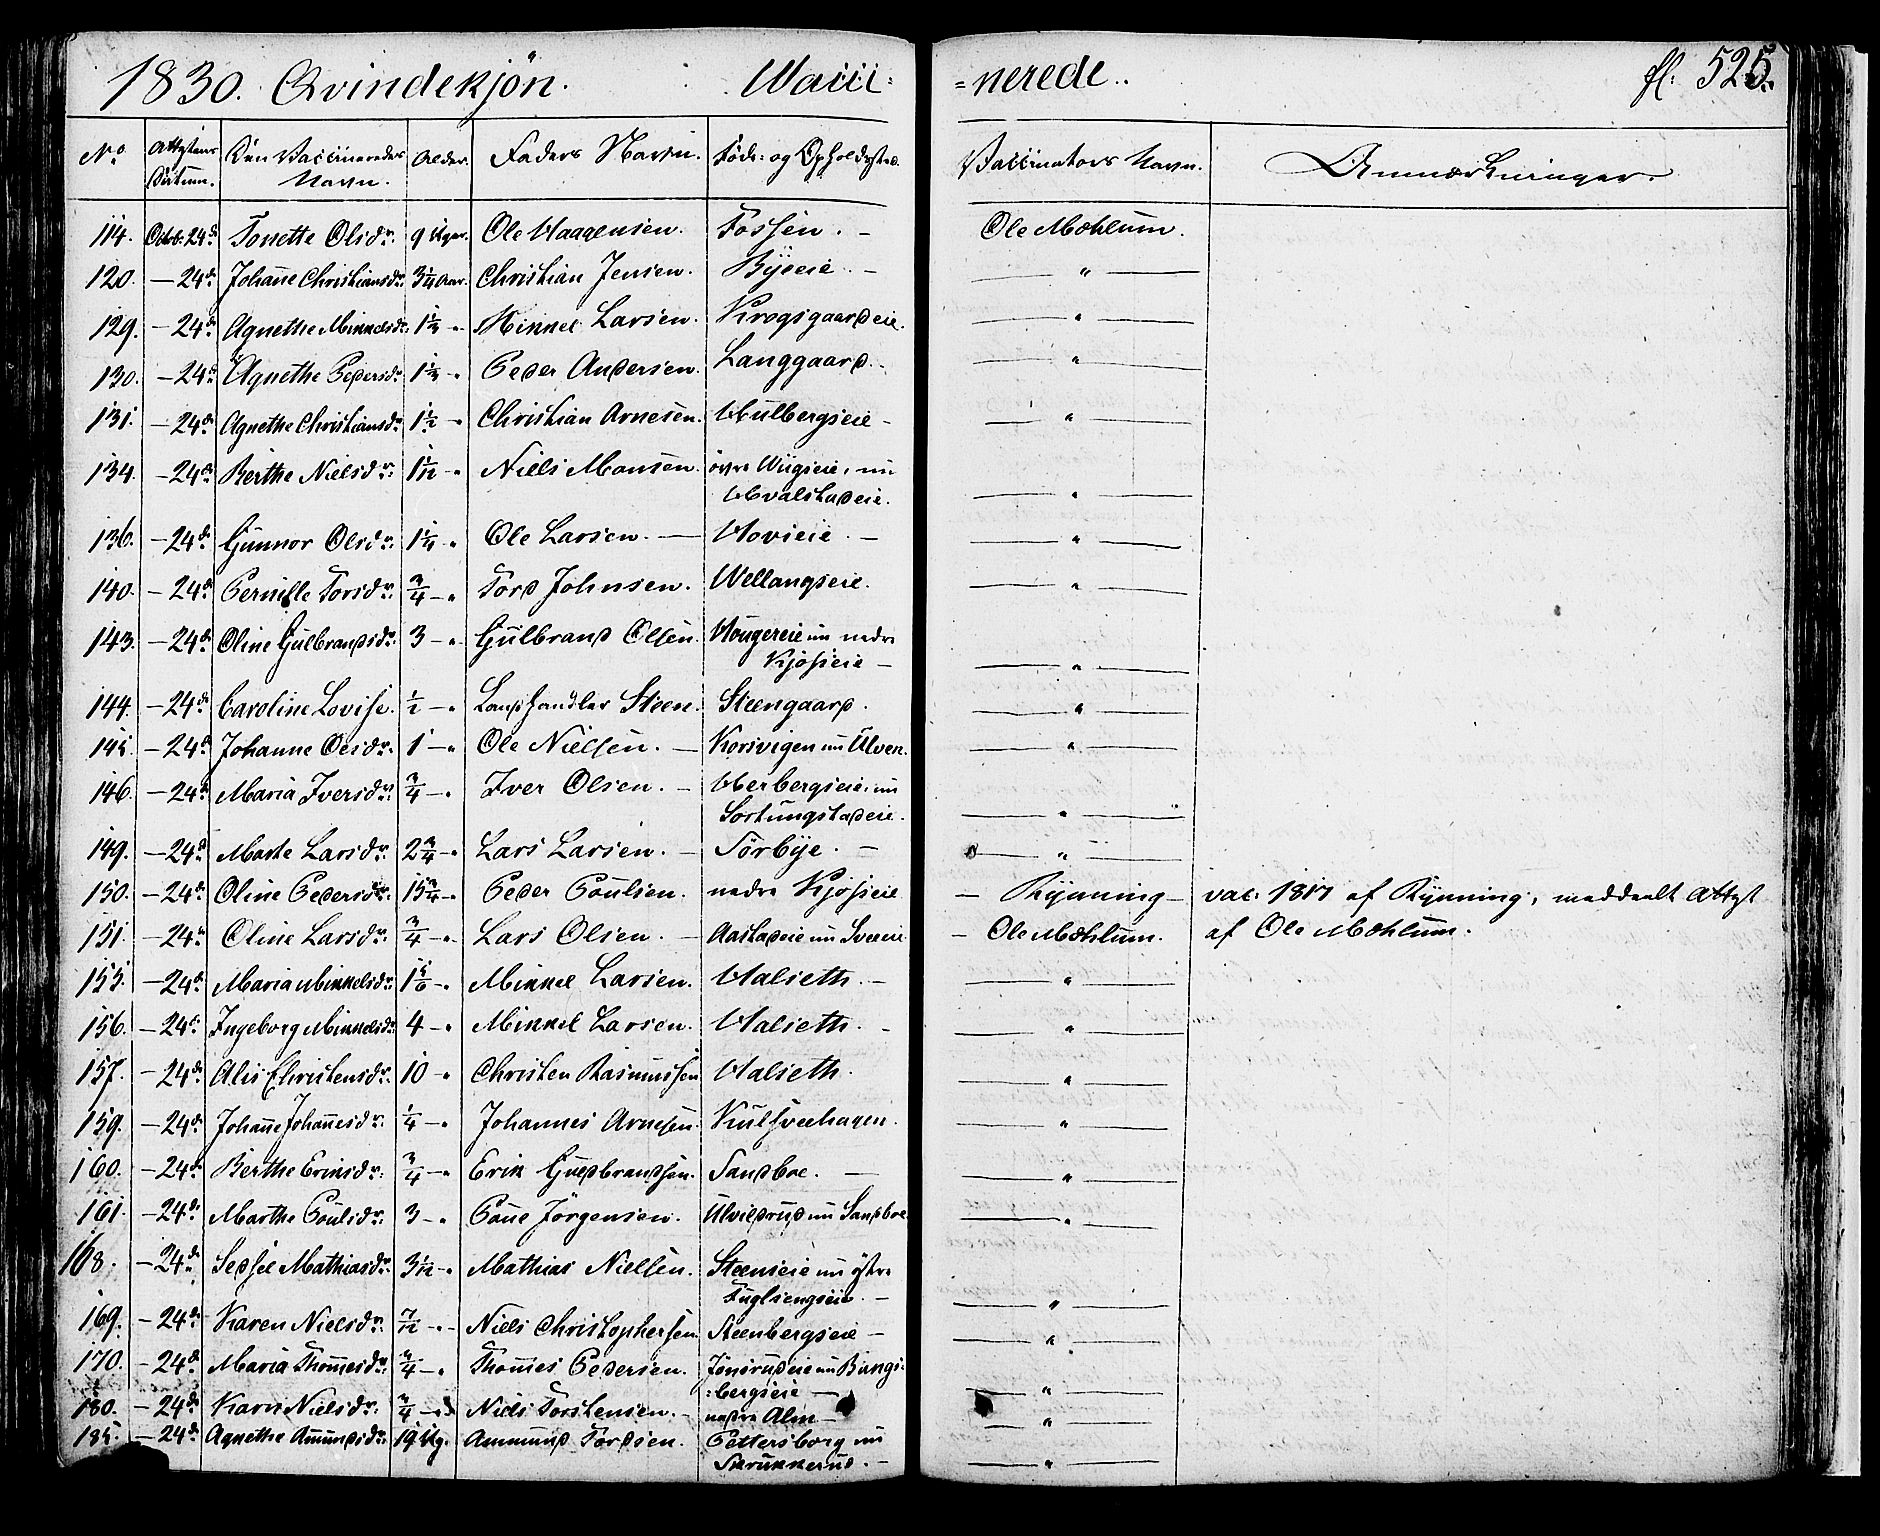 1830. Qvindekjön. Vacci= =nerede. fl. 525.
No Attestens Datum. Den Vaccineredes Navn. Alder. Faders Navn. Føde- og Opholdssted. Vaccinators Navn. Anmærkninger.
114. Octob: 24de Tonette Olsdr: 9 Uger. Ole Haagensen. Fossen. — Ole Mæhlum.
120. — 24de Johane Christiansdr: 3 1/4 Aar. Christian Jensen. Byeeie. — — " —
129. — 24de Agnethe Minnelsdr: 1 1/3 — " Minnel Larsen. Krogsgaardeie. — " —
130. — 24de Agnethe Pedersdr: 1 1/3 — " Peder Andersen. Langgaard. — " —
131. — 24de Agnethe Christiansdr: 1 1/2 — " Christian Arnesen. Hulbergseie — — " —
134. — 24de Berthe Nielsdr: 1 1/12 — " Niels Monsen. övre Wiigseie, nu
Hvalstadeie. — " —
136. — 24de Gunnor Olsdr: 1 1/4 — " Ole Larsen. — Hovieie. — — " —
140. — 24de Pernille Torsdr: 3/4 — " Tord Johnsen. Wellangseie. — " —
143. — 24de Oline Gulbrandsdr: 3 — " Gulbrand Olsen. Hougereie nu nedre
Kjoseie — — " —
144. — 24de Caroline Lovise. 1/2 — " Landhandler Steen. Steengaard. — " —
145. — 24de Johanne Olsdr: 1 — " Ole Nielsen. — Korsvigen nu Ulven. — " —
146. — 24de Maria Iversdr: 3/4 — " Iver Olsen. — Herbergseie nu
Sortungstadeie. — " —
149. — 24de Marte Larsdr: 2 3/4 — " Lars Larsen. — Torbye. — — " —
150. — 24de Oline Pedersdr: 15 3/4 — " Peder Poulsen. nedre Kjoseie — Rynning — vac: 1817 af Rynning, meddeelt Attest
151. — 24de Oline Larsdr: 3/4 — " Lars Olsen. — Aastadeie nu Sveeie — Ole Mæhlum. af Ole Mæhlum.
155. — 24de Maria Minkelsdr: 1 5/6 — " Minkel Larsen. Valseth. — — " —
156. — 24de Ingeborg Minkelsdr: 4 — " Minkel Larsen. Valseth. — — " —
157. — 24de Alis Christensdr: 10 — " Christen Rasmussen Valseth. — " —
159. — 24de Johane Johanesdr: 1/4 — " Johannes Arnesen. Kulsveehagen. — " —
160. — 24de Berthe Eriksdr: 3/4 — " Erik Guldbrandsen. Sandboe. — — " —
161. — 24de Marthe Poulsdr: 3 — " Poul Jörgensen. Ulvildrud nu Sandboe. — " —
168. — 24de Sedsel Mathiasdr: 3 1/12 — " Mathias Nielsen. Steenseie nu östre
Fuglsengseie. — — " —
169. — 24de Karen Nielsdr: 7/12 — " — Niels Christophersen. Steenbergseie — — " —
170. — 24de Maria Thomesdr: 3/4 — " Thomes Pedersen. Jonsrudeie nu Bangs=
=bergseie — — " —
180. — 24de Karn Nielsdr: 3/4 — " Niels Torstensen. — nedre Alm — — " —
185. — 24de Agnethe Amundsdr: 19 Ug. Ammund Tordsen. Pettersborg nu
Skrukkerud. — — " —